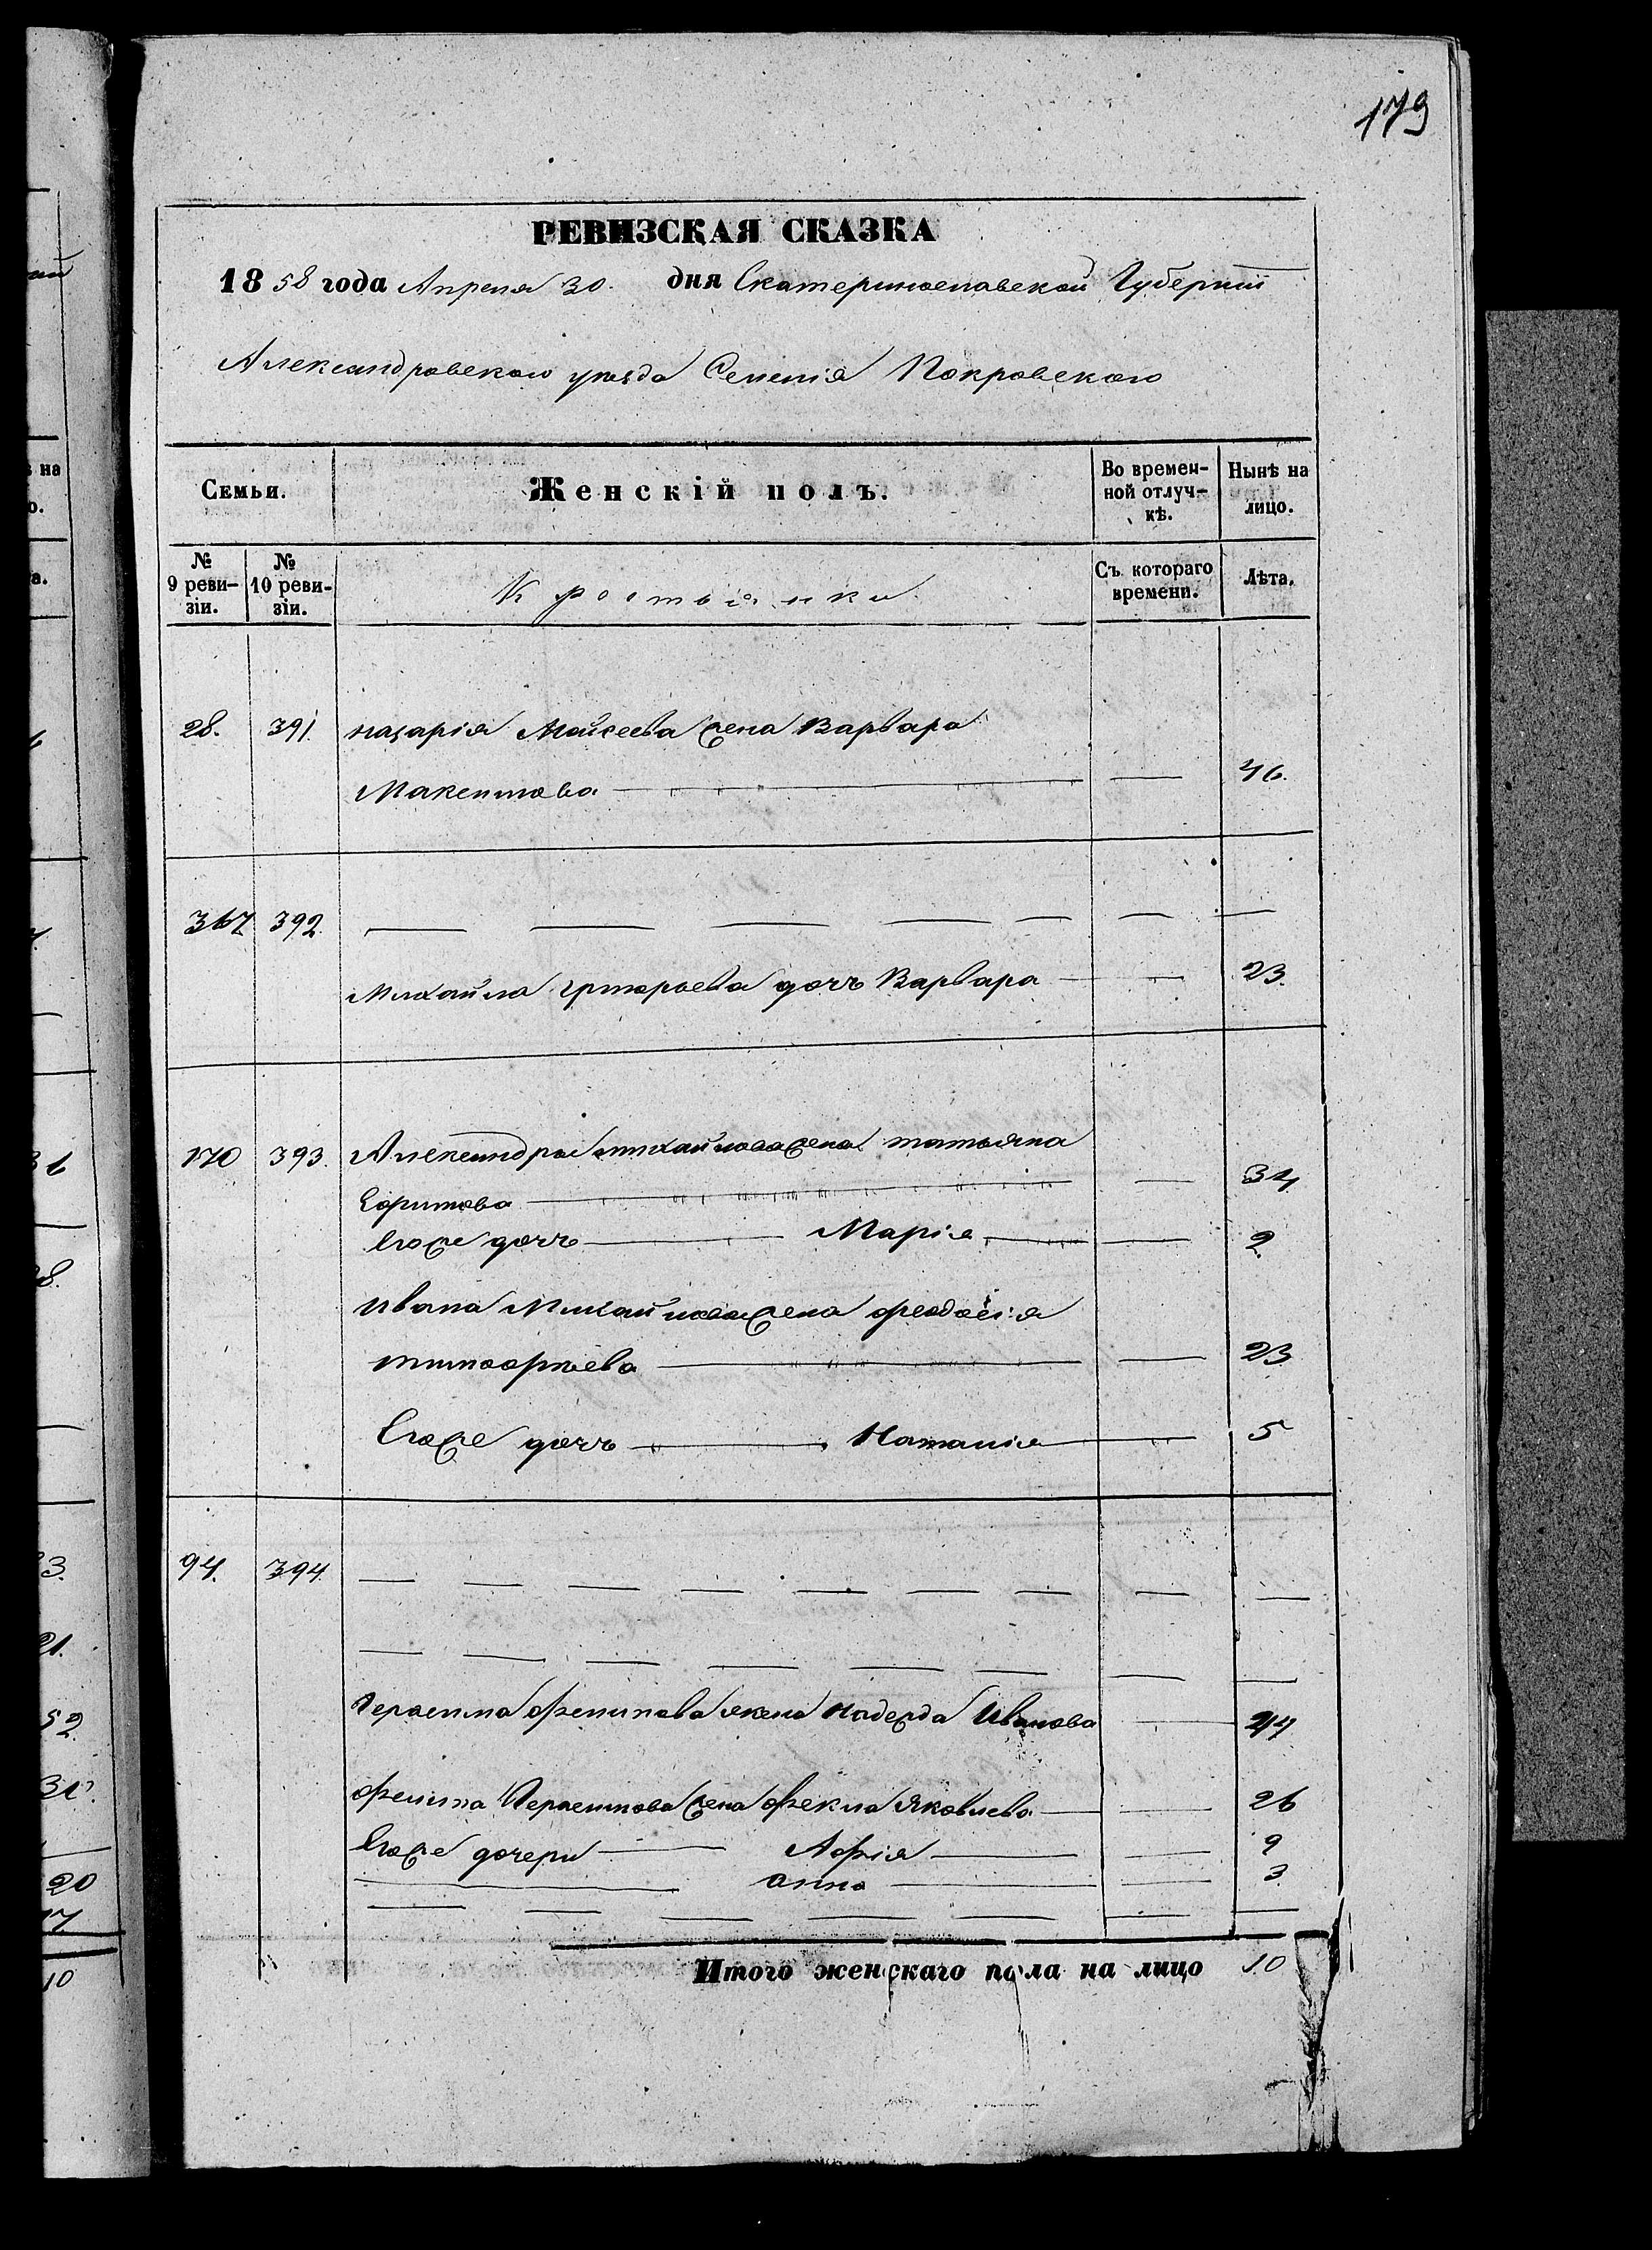 179
РЕВИЗСКАЯ СКАЗКА
1858 года Апреля 30. дня Екатеринославской Губерніи
Александровского уезда Селенія Покровского
Семьи. Женскій полъ. Во времен- Нынѣ на
ной отлуч- лицо.
кѣ.
№ № Съ котораго Лѣта.
9 реви- 10 реви- Крестьянки времени.
зіи. зіи.
28. 391. назарія Моисеева жена Варвара
Максимова 46.
367 392.
Михайла григорьева дочъ Варвара 23.
170 393. Александра михайлова жена татьяна
Ефимова 34
Егоже дочъ Марія 2
Ивана Михайлова жена феодосія
тимофеева 23
Егоже дочъ Наталія 5
94. 394.
Герасима Филипова жена Надежда Иванова 44
Филипа Герасимова жена Фекла Яковлева 26
Егоже дочери 9
анна 3
Итого женскаго пола на лицо 10